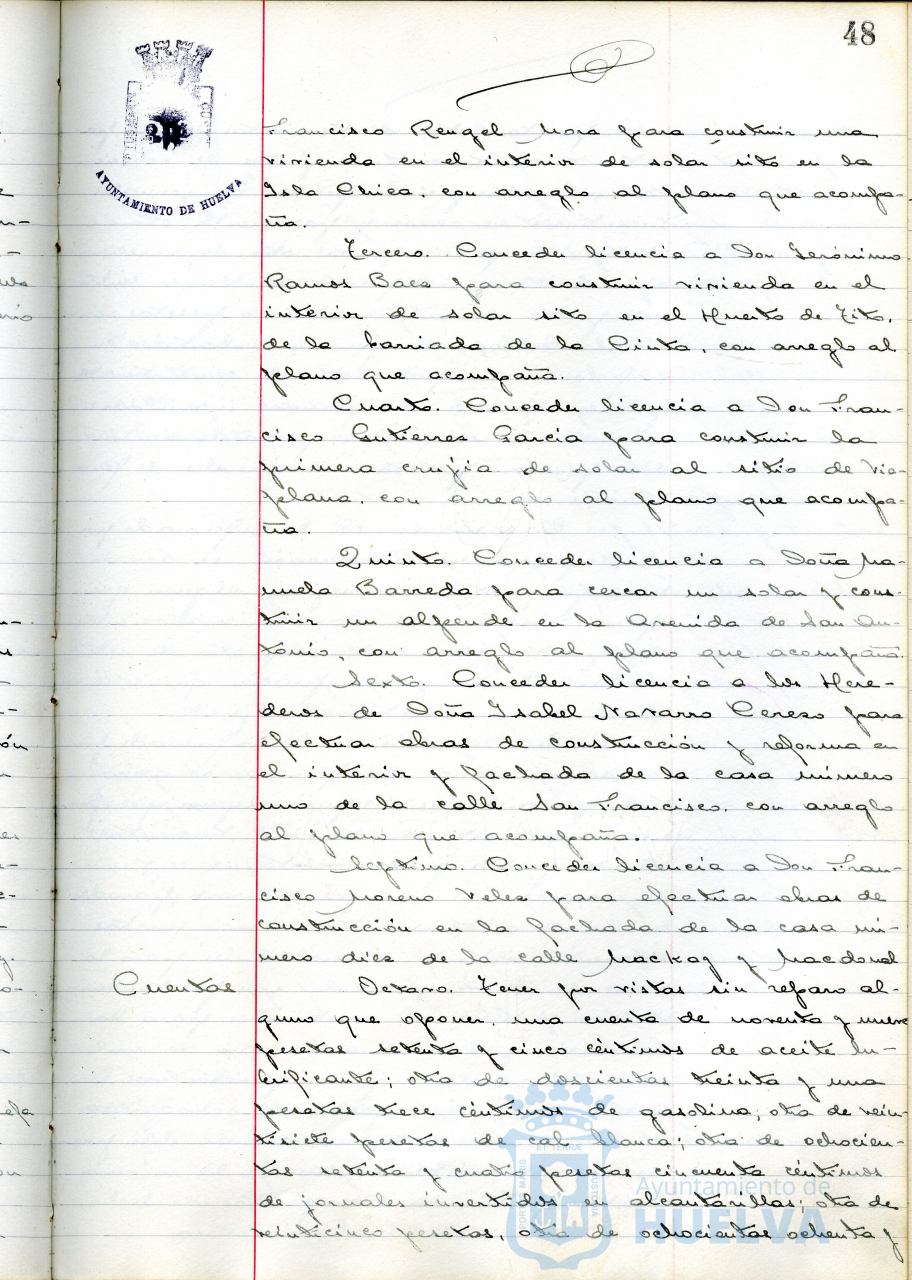 48
AYUNTAMIENTO DE HUELVA
Francisco Rengel Mora para construir una
vivienda en el interior de solar sito en la
Isla Chica, con arreglo al plano que acompa-
ña.
Tercero. Conceder licencia a Don Jerónimo
Ramos Baez para construir vivienda en el
interior de solar sito en el Huerto de Tito,
de la barriada de la Cinta, con arreglo al
plano que acompaña.
Cuarto. Conceder licencia a Don Fran-
cisco Gutierres Garcia para construir la
primera crujia de solar al sitio de Via-
plana, con arreglo al plano que acompa-
ña.
Quinto. Conceder licencia a Doña Ma-
nuela Barreda para cercar un solar y cons-
truir un alpende en la Avenida de San An-
tonio, con arreglo al plano que acompaña.
Sexto. Conceder licencia a los Here-
deros de Doña Ysabel Navarro Cerezo para
efectuar obras de construcción y reforma en
el interior y fachada de la casa número
uno de la calle San Francisco, con arreglo
al plano que acompaña.
Septimo. Conceder licencia a Don Fran-
cisco Moreno Velez para efectuar obras de
construcción en la fachada de la casa nú-
mero diez de la calle Mackay y Macdonal
Cuentas
Octavo. Tener por vistas sin reparo al-
guno que oponer, una cuenta de noventa y nueve
pesetas setenta y cinco céntimos de aceite lu-
brificante; otra de doscientas treinta y una
pesetas trece céntimos de gasolina; otra de vein-
tisiete pesetas de cal blanca; otra de ochocien-
tas setenta y cuatro pesetas cincuenta céntimos
de jornales invertidos en alcantarillas; otra de
veinticinco pesetas, otra de ochocientas ochenta y
Ayuntamiento de
HUELVA